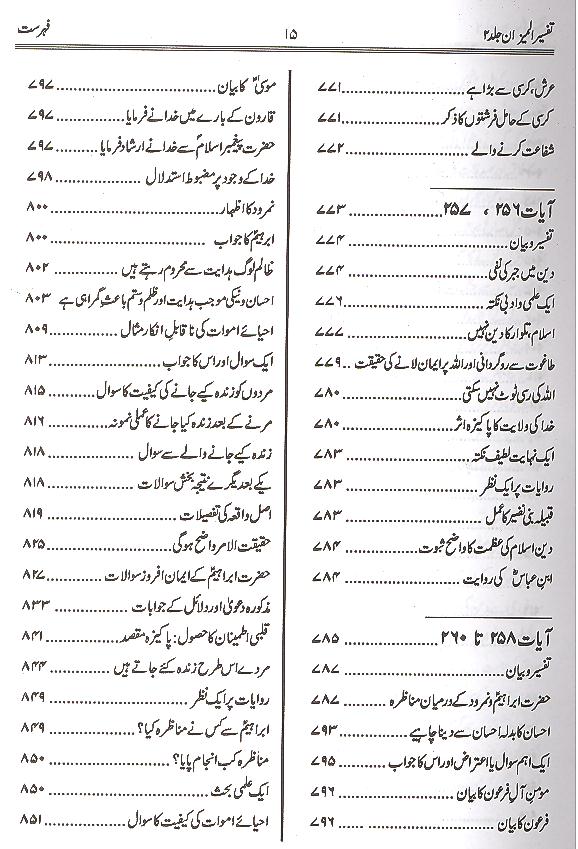 تفسیر المیزان جلد ۲
۱۵
فہرست
عرش، کرسی سے بڑا ہے ........ ۷۷۱
کرسی کے حامل فرشتوں کا ذکر ........ ۷۷۱
شفاعت کرنے والے ........ ۷۷۲
آیات ۲۵۶ ، ۲۵۷ ........ ۷۷۳
تفسیر و بیان ........ ۷۷۴
دین میں جبر کی نفی ........ ۷۷۴
ایک علمی و ادبی نکتہ ........ ۷۷۶
اسلام، تلوار کا دین نہیں ........ ۷۷۷
طاغوت سے روگردانی اور اللہ پر ایمان لانے کی حقیقت .. ۷۷۹
اللہ کی رسی ٹوٹ نہیں سکتی ........ ۷۸۰
خدا کی ولایت کا پاکیزہ اثر ........ ۷۸۰
ایک نہایت لطیف نکتہ ........ ۷۸۳
روایات پر ایک نظر ........ ۷۸۳
قبیلہ بنی نضیر کا عمل ........ ۷۸۳
دین اسلام کی عظمت کا واضح ثبوت ........ ۷۸۴
ابن عباسؓ کی روایت ........ ۷۸۴
آیات ۲۵۸ تا ۲۶۰ ........ ۷۸۵
تفسیر و بیان ........ ۷۸۷
حضرت ابراہیمؑ و نمرود کے درمیان مناظرہ ........ ۷۸۷
احسان کا بدلہ احسان سے دینا چاہیے ........ ۷۹۳
ایک اہم سوال یا اعتراض اور اس کا جواب ........ ۷۹۵
مومن آل فرعون کا بیان ........ ۷۹۶
فرعون کا بیان ........ ۷۹۶
موسیٰؑ کا بیان ........ ۷۹۷
قارون کے بارے میں خدا نے فرمایا ........ ۷۹۷
حضرت پیغمبر اسلامؐ سے خدا نے ارشاد فرمایا ........ ۷۹۷
خدا کے وجود پر مضبوط استدلال ........ ۷۹۸
نمرود کا اظہار ........ ۸۰۰
ابراہیمؑ کا جواب ........ ۸۰۰
ظالم لوگ ہدایت سے محروم رہتے ہیں ........ ۸۰۲
احسان و نیکی موجب ہدایت اور ظلم و ستم باعث گمراہی ہے ۸۰۳
احیائے اموات کی ناقابلِ انکار مثال ........ ۸۰۹
ایک سوال اور اس کا جواب ........ ۸۱۳
مردوں کو زندہ کیے جانے کی کیفیت کا سوال ........ ۸۱۵
مرنے کے بعد زندہ کیا جانے کا عملی نمونہ ........ ۸۱۶
زندہ کیے جانے والے سے سوال ........ ۸۱۸
یکے بعد دیگرے نتیجہ بخش سوالات ........ ۸۱۸
اصل واقعہ کی تفصیلات ........ ۸۱۹
حقیقت الامر واضح ہوگی ........ ۸۲۵
حضرت ابراہیمؑ کے ایمان افروز سوالات ........ ۸۲۷
مذکورہ دعویٰ اور دلائل کے جوابات ........ ۸۳۳
قلبی اطمینان کا حصول: پاکیزہ مقصد ........ ۸۴۱
مردے اس طرح زندہ کئے جاتے ہیں ........ ۸۴۴
روایات پر ایک نظر ........ ۸۴۹
ابراہیمؑ سے کس نے مناظرہ کیا؟ ........ ۸۴۹
مناظرہ کب انجام پایا؟ ........ ۸۵۰
ایک علمی بحث ........ ۸۵۰
احیائے اموات کی کیفیت کا سوال ........ ۸۵۱